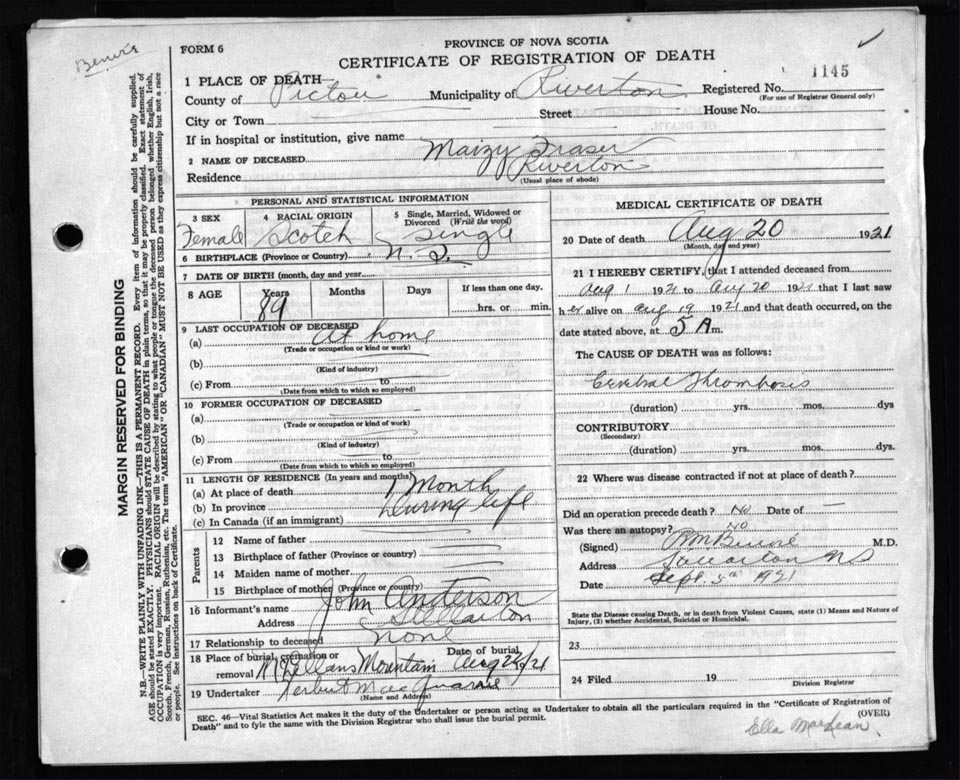 Benvie
FORM 6
PROVINCE OF NOVA SCOTIA
CERTIFICATE OF REGISTRATION OF DEATH
1145
1 PLACE OF DEATH—
County of Pictou Municipality of Riverton Registered No.
(For use of Registrar General only)
City or Town Street House No.
If in hospital or institution, give name
2 NAME OF DECEASED. Maizy Fraser
Residence Riverton
(Usual place of abode)
PERSONAL AND STATISTICAL INFORMATION
3 SEX
Female
4 RACIAL ORIGIN
Scotch
5 Single, Married, Widowed or Divorced (Write the word)
Single
6 BIRTHPLACE (Province or Country) N. S.
7 DATE OF BIRTH (month, day and year)
8 AGE Years Months Days If less than one day,
89 hrs. or min.
9 LAST OCCUPATION OF DECEASED
(a) At home
(Trade or occupation or kind or work)
(b)
(Kind of industry)
(c) From to
(Date from which to which so employed)
10 FORMER OCCUPATION OF DECEASED
(a)
(Trade or occupation or kind of work)
(b)
(Kind of industry)
(c) From to
(Date from which to which so employed)
11 LENGTH OF RESIDENCE (In years and months)
(a) At place of death 1 Month
(b) In province During life
(c) In Canada (if an immigrant)
Parents
12 Name of father
13 Birthplace of father (Province or country)
14 Maiden name of mother
15 Birthplace of mother (Province or country)
16 Informant's name John Anderson
Address Stellarton
17 Relationship to deceased none
18 Place of burial, cremation or removal McLellans Mountain Date of burial Aug 22/21
19 Undertaker Herbert MacQuarrie
(Name and Address)
MEDICAL CERTIFICATE OF DEATH
20 Date of death Aug 20 1921
(Month, day and year)
21 I HEREBY CERTIFY, that I attended deceased from
Aug 1 1921 to Aug 20 1921 that I last saw
her alive on Aug 19 1921 and that death occurred, on the
date stated above, at 5 A m.
The CAUSE OF DEATH was as follows:
Cerebral Thrombosis
(duration) yrs. mos. dys
CONTRIBUTORY
(Secondary)
(duration) yrs. mos. dys.
22 Where was disease contracted if not at place of death?
Did an operation precede death? No Date of —
Was there an autopsy? NO
(Signed) M.D.
Address NS
Date Sept. 5th 1921
State the Disease causing Death, or in death from Violent Causes, state (1) Means and Nature of Injury, (2) whether Accidental, Suicidal or Homicidal.
23
24 Filed 19 Division Registrar
SEC. 46—Vital Statistics Act makes it the duty of the Undertaker or person acting as Undertaker to obtain all the particulars required in the "Certificate of Registration of
Death" and to fyle the same with the Division Registrar who shall issue the burial permit. (OVER)
Ella MacLean
MARGIN RESERVED FOR BINDING
N.B.—WRITE PLAINLY WITH UNFADING INK—THIS IS A PERMANENT RECORD. Every item of information should be carefully supplied.
AGE should be stated EXACTLY. PHYSICIANS should STATE CAUSE OF DEATH in plain terms, so that it may be properly classified. Exact statement of
OCCUPATION is very important. RACIAL ORIGIN will be described by stating to what people or tongue the deceased person belonged whether English, Irish,
Scotch, French, German, Russian, Ruthenian, etc. The terms "AMERICAN" or "CANADIAN" MUST NOT BE USED as they express citizenship but not a race
or people. See instructions on back of Certificate.